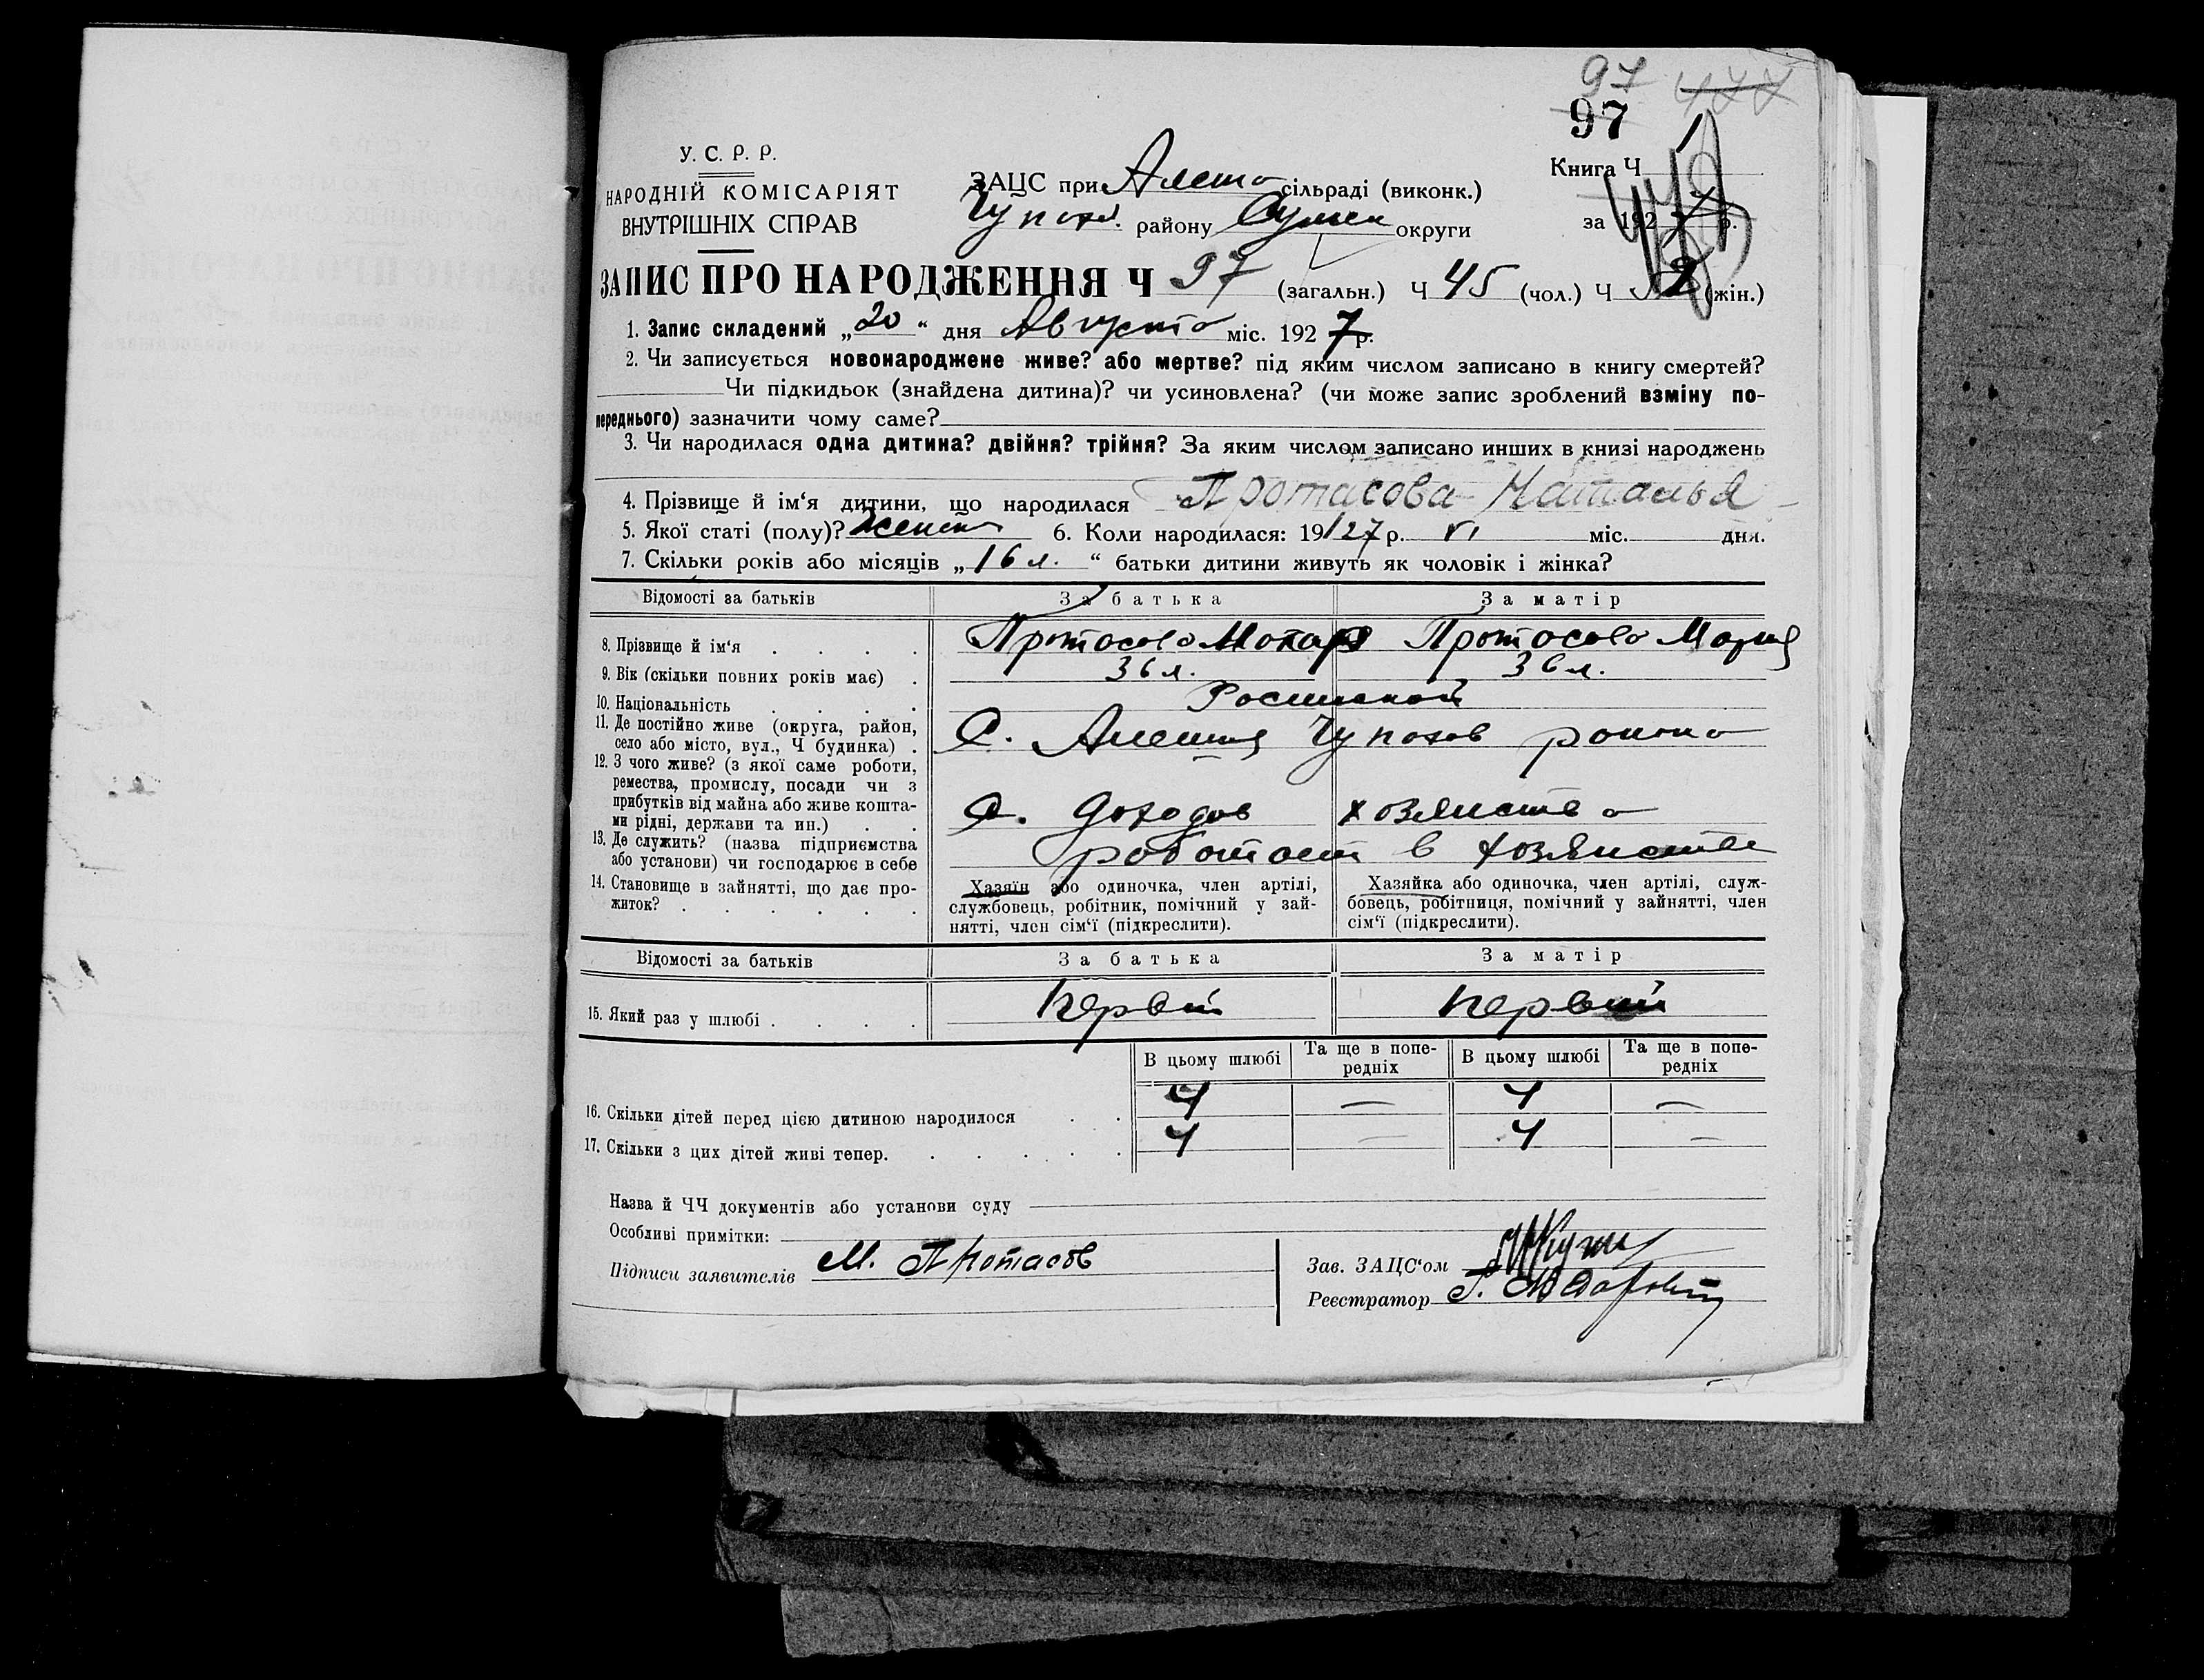 97 477
97
У. С. Р. Р.
НАРОДНІЙ КОМІСАРІЯТ
ВНУТРІШНІХ СПРАВ
ЗАЦС при сільраді (виконк.)
району округи
Книга Ч 1
за 1927 р.
ЗАПИС ПРО НАРОДЖЕННЯ Ч 97 (загальн.) Ч 45 (чол.) Ч (жін.)
1. Запис складений „20“ дня Августа міс. 1927 р.
2. Чи записується новонароджене живе? або мертве? під яким числом записано в книгу смертей?
Чи підкидьок (знайдена дитина)? чи усиновлена? (чи може запис зроблений взміну по-
переднього) зазначити чому саме?
3. Чи народилася одна дитина? двійня? трійня? За яким числом записано инших в книзі народжень
4. Прізвище й ім‘я дитини, що народилася Протасова Наталья
5. Якої статі (полу)? 6. Коли народилася: 1927 р. VI міс. дня.
7. Скільки років або місяців „16 л.“ батьки дитини живуть як чоловік і жінка?
Відомості за батьків За батька За матір
8. Прізвище й ім‘я . . . . Протасова Макар Протасова Мария
9. Вік (скільки повних років має) . 36 л. 36 л.
10. Національність . . . .
11. Де постійно живе (округа, район,
село або місто, вул., Ч будинка) . С. Алешня Чупахов района
12. З чого живе? (з якої саме роботи,
ремества, промислу, посади чи з
прибутків від майна або живе кошта-
ми рідні, держави та ин.) . . С. доходов хозяиства
13. Де служить? (назва підприємства
або установи) чи господарює в себе работает в хозяистве
14. Становище в зайнятті, що дає про-
житок? . . . . . .
Хазяїн або одиночка, член артілі,
службовець, робітник, помічний у зай-
нятті, член сім‘ї (підкреслити).
Хазяйка або одиночка, член артілі, служ-
бовець, робітниця, помічний у зайнятті, член
сім‘ї (підкреслити).
Відомості за батьків За батька За матір
15. Який раз у шлюбі . . . . первий первий
В цьому шлюбі Та ще в попе-
редніх В цьому шлюбі Та ще в попе-
редніх
16. Скільки дітей перед цією дитиною народилося . . 4 — 4 —
17. Скільки з цих дітей живі тепер. . . . . . 4 — 4 —
Назва й ЧЧ документів або установи суду
Особливі примітки:
Підписи заявителів М. Протасов
Зав. ЗАЦС‘ом
Реєстратор